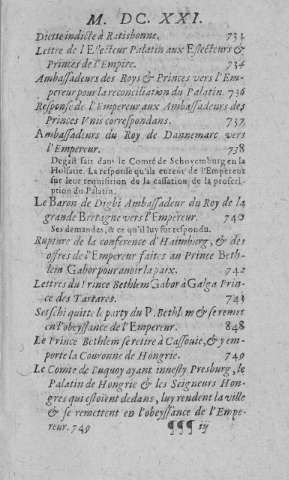 M. DC. XXI.
Diette indicte à Ratisbonne. 733
Lettre de l'Eslecteur Palatin aux Eslecteurs &
Princes de l'Empire. 734
Ambassadeurs des Roys & Princes vers l'Em-
pereur pour la reconciliation du Palatin. 736
Response de l'Empereur aux Ambassadeurs des
Princes Vnis correspondans. 737
Ambassadeurs du Roy de Dannemarc vers
l'Empereur. 738
Degast fait dans le Comté de Schovemburg en la
Holsatie. La response qu'ils eurent de l'Empereur
sur leur requisition de la cassation de la proscri-
ption du Palatin.
Le Baron de Digbi Ambassadeur du Roy de la
grande Bretagne vers l'Empereur. 740
Ses demandes, & ce qu'il luy fut respondu.
Rupture de la conference d'Haimborg, & des
offres de l'Empereur faites au Prince Beth-
lein Gabor pour auoir la paix. 742
Lettres du Prince Bethlem Gabor à Galga Prin-
ce des Tartares. 743
Setschi quitte le party du P. Bethlem & se remet
en l'obeyssance de l'Empereur. 848
Le Prince Bethlem se retire à Cassouie, & y em-
porte la Couronne de Hongrie. 749
Le Comte de Buquoy ayant inuesty Presburg, le
Palatin de Hongrie & les Seigneurs Hon-
gres qui estoient dedans, luy rendent la ville
& se remettent en l'obeyssance de l'Empe-
reur. 749 ¶¶¶ iij